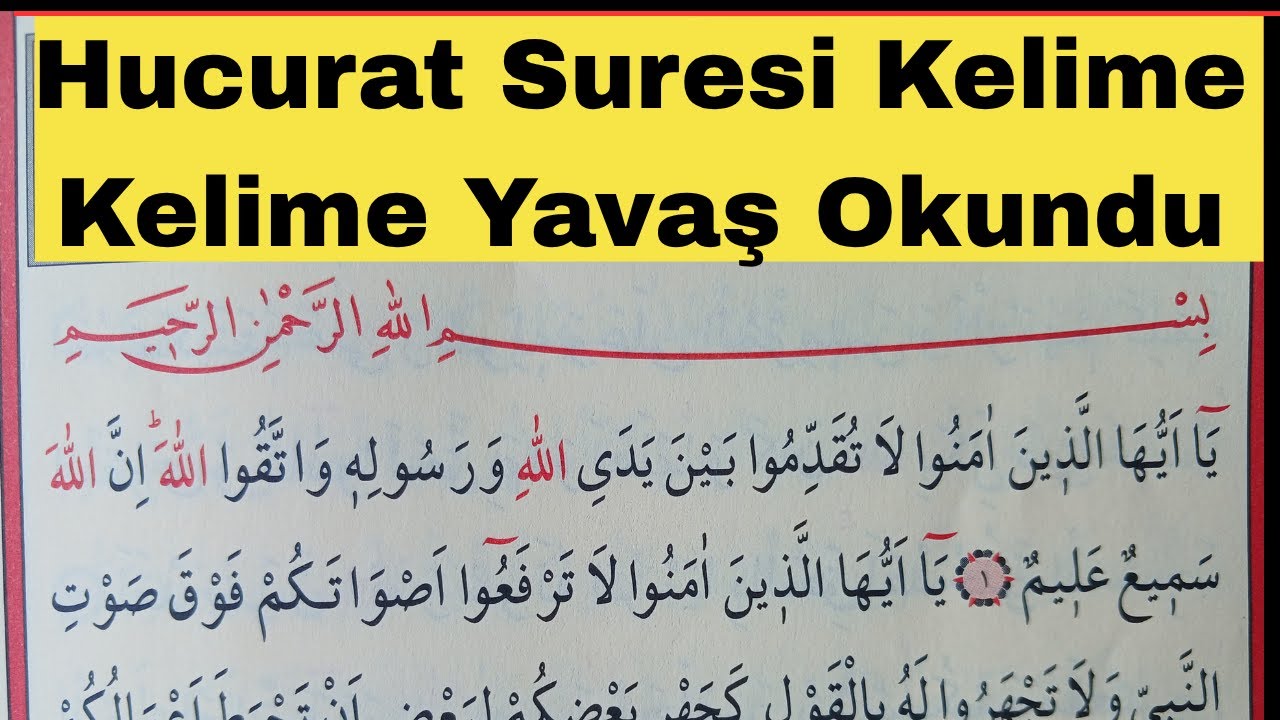 Hucurat Suresi Kelime
Kelime Yavaş Okundu
بِسْمِ اللّٰهِ الرَّحْمٰنِ الرَّحٖيمِ
يَٓا اَيُّهَا الَّذٖينَ اٰمَنُوا لَا تُقَدِّمُوا بَيْنَ يَدَيِ اللّٰهِ وَرَسُولِهٖ وَاتَّقُوا اللّٰهَؕ اِنَّ اللّٰهَ
سَمٖيعٌ عَلٖيمٌ ﴿١﴾ يَٓا اَيُّهَا الَّذٖينَ اٰمَنُوا لَا تَرْفَعُٓوا اَصْوَاتَكُمْ فَوْقَ صَوْتِ
النَّبِيِّ وَلَا تَجْهَرُوا لَهُ بِالْقَوْلِ كَجَهْرِ بَعْضِكُمْ لِبَعْضٍ اَنْ تَحْبَطَ اَعْمَالُكُمْ